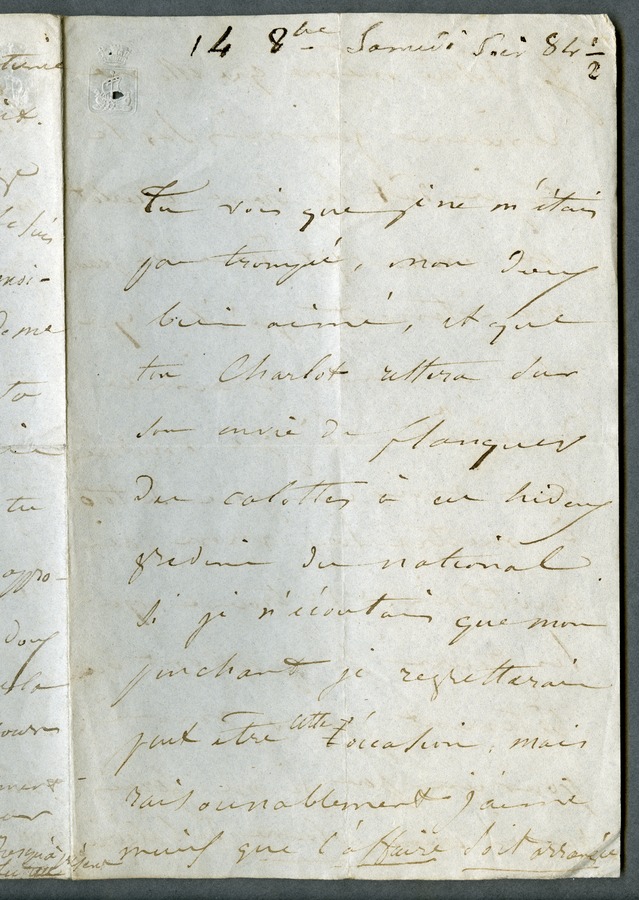 14 8bre Samedi Soir 8h ½
Tu vois que je ne m'étais
pas trompé, mon Dieu
bien aimé, et que
ton Charlot restera sur
son envie de flanquer
des calottes à ce hideux
gredin du national.
Si je n'écoutais que mon
penchant je regretterais
peut être cette occasion, mais
raisonnablement j'aime
mieux que l'affaire soit arrangée
me
to
tu
appro-
jours
ment